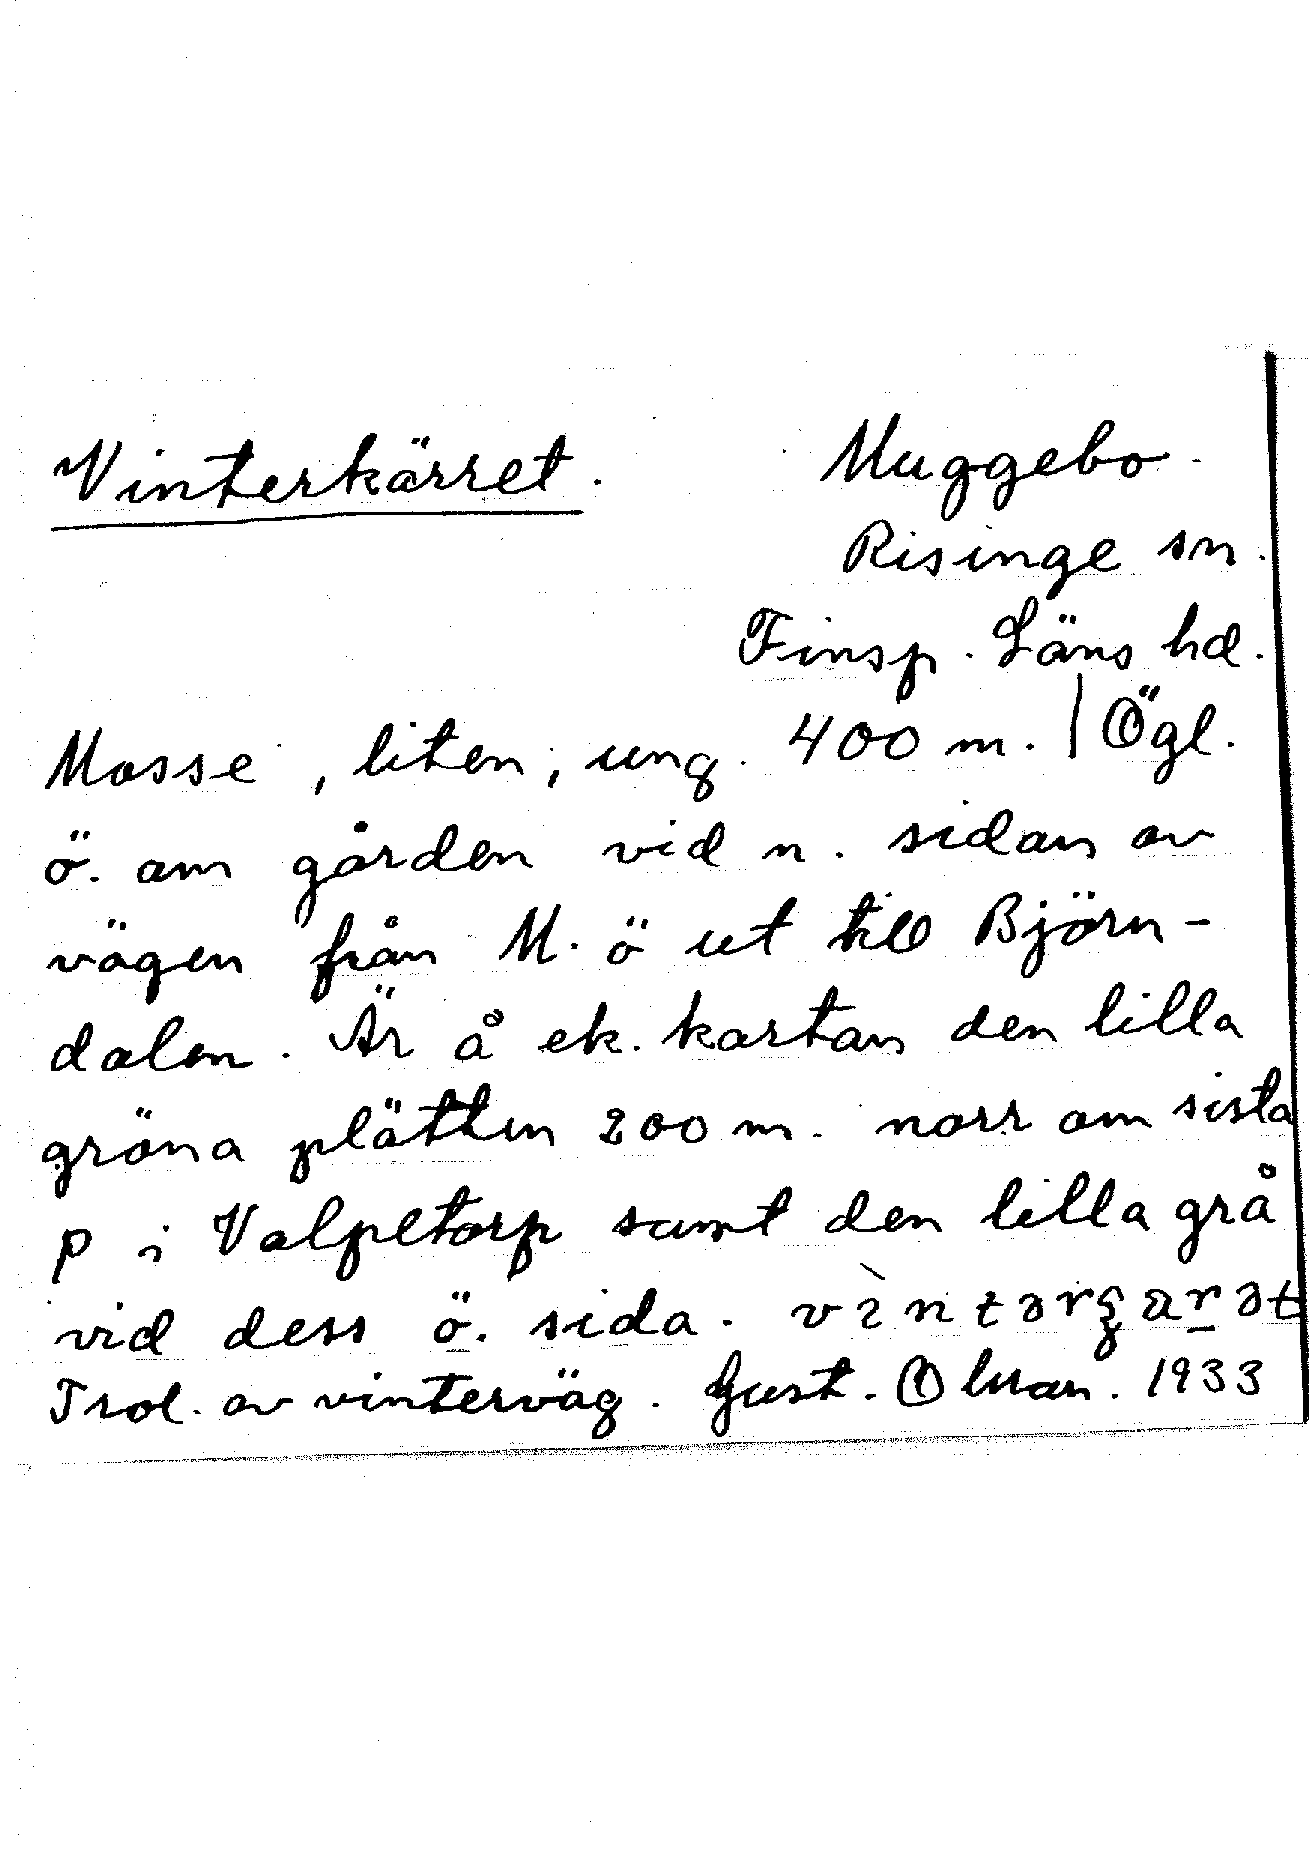 Vinterkärret.
Muggebo.
Risinge sn.
Finsp. Läns hd.
Mosse, liten, ung. 400 m. | Ögl.
ö. om gården vid n. sidan av
vägen från M. ö ut till Björn-
dalen. Är å ek. kartan den lilla
gröna plätten 200 m. norr om sista
p i Valpetorp samt den lilla grå
vid dess ö. sida.
Trol. av vinterväg. Gust. Olsson. 1933